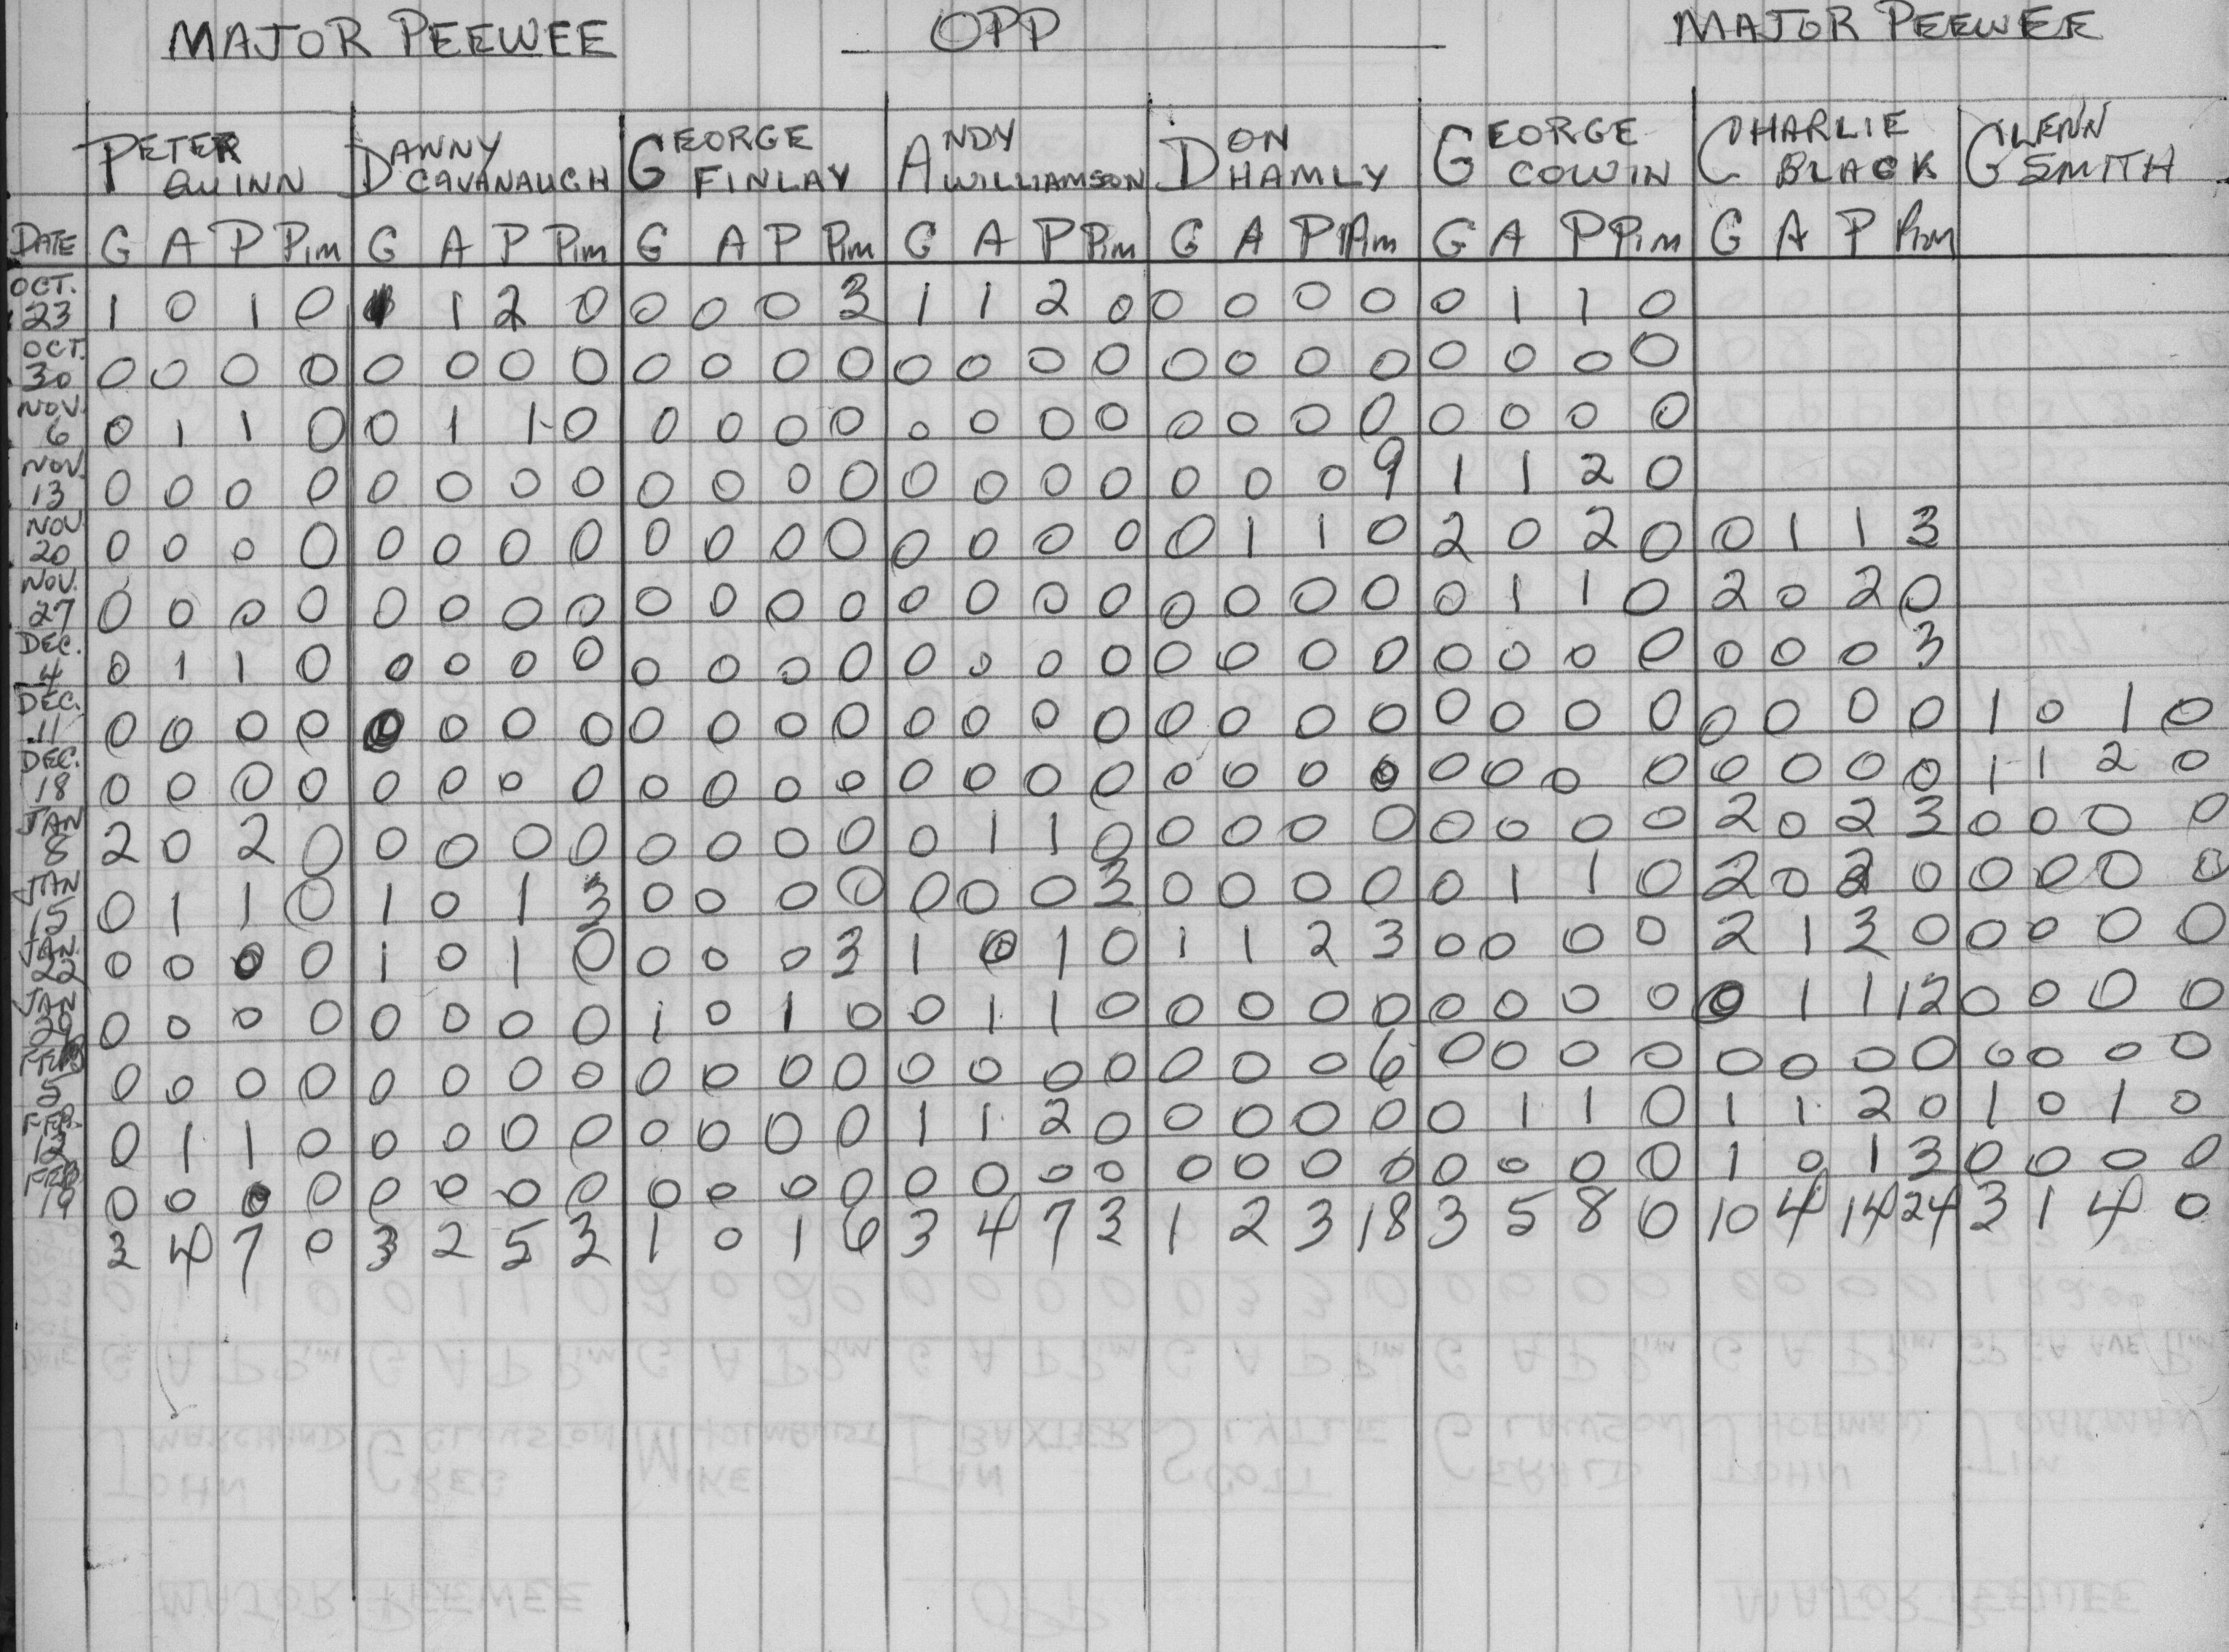 MAJOR PEEWEE OPP MAJOR PEEWEE
PETER QUINN DANNY CAVANAUGH GEORGE FINLAY ANDY WILLIAMSON DON HAMLY GEORGE COWIN CHARLIE BLACK GLENN SMITH
DATE G A P Pim G A P Pim G A P Pim G A P Pim G A P Pim G A P Pim G A P Pim
OCT. 23 1 0 1 0 1 1 2 0 0 0 0 3 1 1 2 0 0 0 0 0 0 1 1 0
OCT. 30 0 0 0 0 0 0 0 0 0 0 0 0 0 0 0 0 0 0 0 0 0 0 0 0
NOV. 6 0 1 1 0 0 1 1 0 0 0 0 0 0 0 0 0 0 0 0 0 0 0 0 0
NOV. 13 0 0 0 0 0 0 0 0 0 0 0 0 0 0 0 0 0 0 0 9 1 1 2 0
NOV 20 0 0 0 0 0 0 0 0 0 0 0 0 0 0 0 0 0 1 1 0 2 0 2 0 0 1 1 3
NOV. 27 0 0 0 0 0 0 0 0 0 0 0 0 0 0 0 0 0 0 0 0 0 1 1 0 2 0 2 0
DEC. 4 0 1 1 0 0 0 0 0 0 0 0 0 0 0 0 0 0 0 0 0 0 0 0 0 0 0 0 3
DEC. 11 0 0 0 0 0 0 0 0 0 0 0 0 0 0 0 0 0 0 0 0 0 0 0 0 0 0 0 0 1 0 1 0
DEC. 18 0 0 0 0 0 0 0 0 0 0 0 0 0 0 0 0 0 0 0 0 0 0 0 0 0 0 0 0 1 1 2 0
JAN 8 2 0 2 0 0 0 0 0 0 0 0 0 0 1 1 0 0 0 0 0 0 0 0 0 2 0 2 3 0 0 0 0
JAN 15 0 1 1 0 1 0 1 3 0 0 0 0 0 0 0 3 0 0 0 0 0 1 1 0 2 0 2 0 0 0 0 0
JAN. 22 0 0 0 0 1 0 1 0 0 0 0 3 1 0 1 0 1 1 2 3 0 0 0 0 2 1 3 0 0 0 0 0
JAN 29 0 0 0 0 0 0 0 0 1 0 1 0 0 1 1 0 0 0 0 0 0 0 0 0 0 1 1 12 0 0 0 0
FEB 5 0 0 0 0 0 0 0 0 0 0 0 0 0 0 0 0 0 0 0 6 0 0 0 0 0 0 0 0 0 0 0 0
FEB. 12 0 1 1 0 0 0 0 0 0 0 0 0 1 1 2 0 0 0 0 0 0 1 1 0 1 1 2 0 1 0 1 0
FEB 19 0 0 0 0 0 0 0 0 0 0 0 0 0 0 0 0 0 0 0 0 0 0 0 0 1 0 1 3 0 0 0 0
3 4 7 0 3 2 5 3 1 0 1 6 3 4 7 3 1 2 3 18 3 5 8 0 10 4 14 24 3 1 4 0